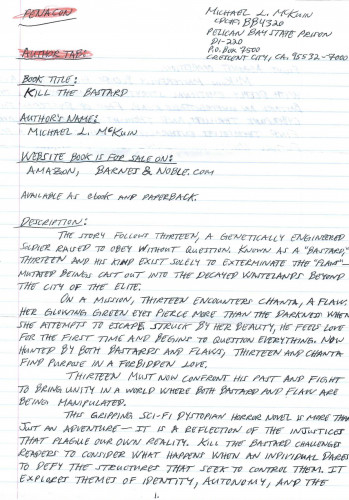 PENACON
MICHAEL L. McKUIN
CDCR# BB4320
PELICAN BAY STATE PRISON
D1-220
P.O. BOX 7500
CRESCENT CITY, CA. 95532-7000
AUTHOR TABS
BOOK TITLE:
KILL THE BASTARD
AUTHOR'S NAME:
MICHAEL L. McKUIN
WEBSITE BOOK IS FOR SALE ON:
AMAZON, BARNES & NOBLE.COM
AVAILABLE AS ebook AND PAPERBACK.
DESCRIPTION:
THE STORY FOLLOWS THIRTEEN, A GENETICALLY ENGINEERED
SOLDIER RAISED TO OBEY WITHOUT QUESTION. KNOWN AS A "BASTARD,"
THIRTEEN AND HIS KIND EXIST SOLELY TO EXTERMINATE THE "FLAWS"—
MUTATED BEINGS CAST OUT INTO THE DECAYED WASTELANDS BEYOND
THE CITY OF THE ELITE.
ON A MISSION, THIRTEEN ENCOUNTERS CHANTA, A FLAW.
HER GLOWING GREEN EYES PIERCE MORE THAN THE DARKNESS WHEN
SHE ATTEMPTS TO ESCAPE. STRUCK BY HER BEAUTY, HE FEELS LOVE
FOR THE FIRST TIME AND BEGINS TO QUESTION EVERYTHING. NOW
HUNTED BY BOTH BASTARDS AND FLAWS, THIRTEEN AND CHANTA
FIND PURPOSE IN A FORBIDDEN LOVE.
THIRTEEN MUST NOW CONFRONT HIS PAST AND FIGHT
TO BRING UNITY IN A WORLD WHERE BOTH BASTARD AND FLAW ARE
BEING MANIPULATED.
THIS GRIPPING SCI-FI DYSTOPIAN HORROR NOVEL IS MORE THAN
JUST AN ADVENTURE—IT IS A REFLECTION OF THE INJUSTICES
THAT PLAGUE OUR OWN REALITY. KILL THE BASTARD CHALLENGES
READERS TO CONSIDER WHAT HAPPENS WHEN AN INDIVIDUAL DARES
TO DEFY THE STRUCTURES THAT SEEK TO CONTROL THEM. IT
EXPLORES THEMES OF IDENTITY, AUTONOMY, AND THE
1.